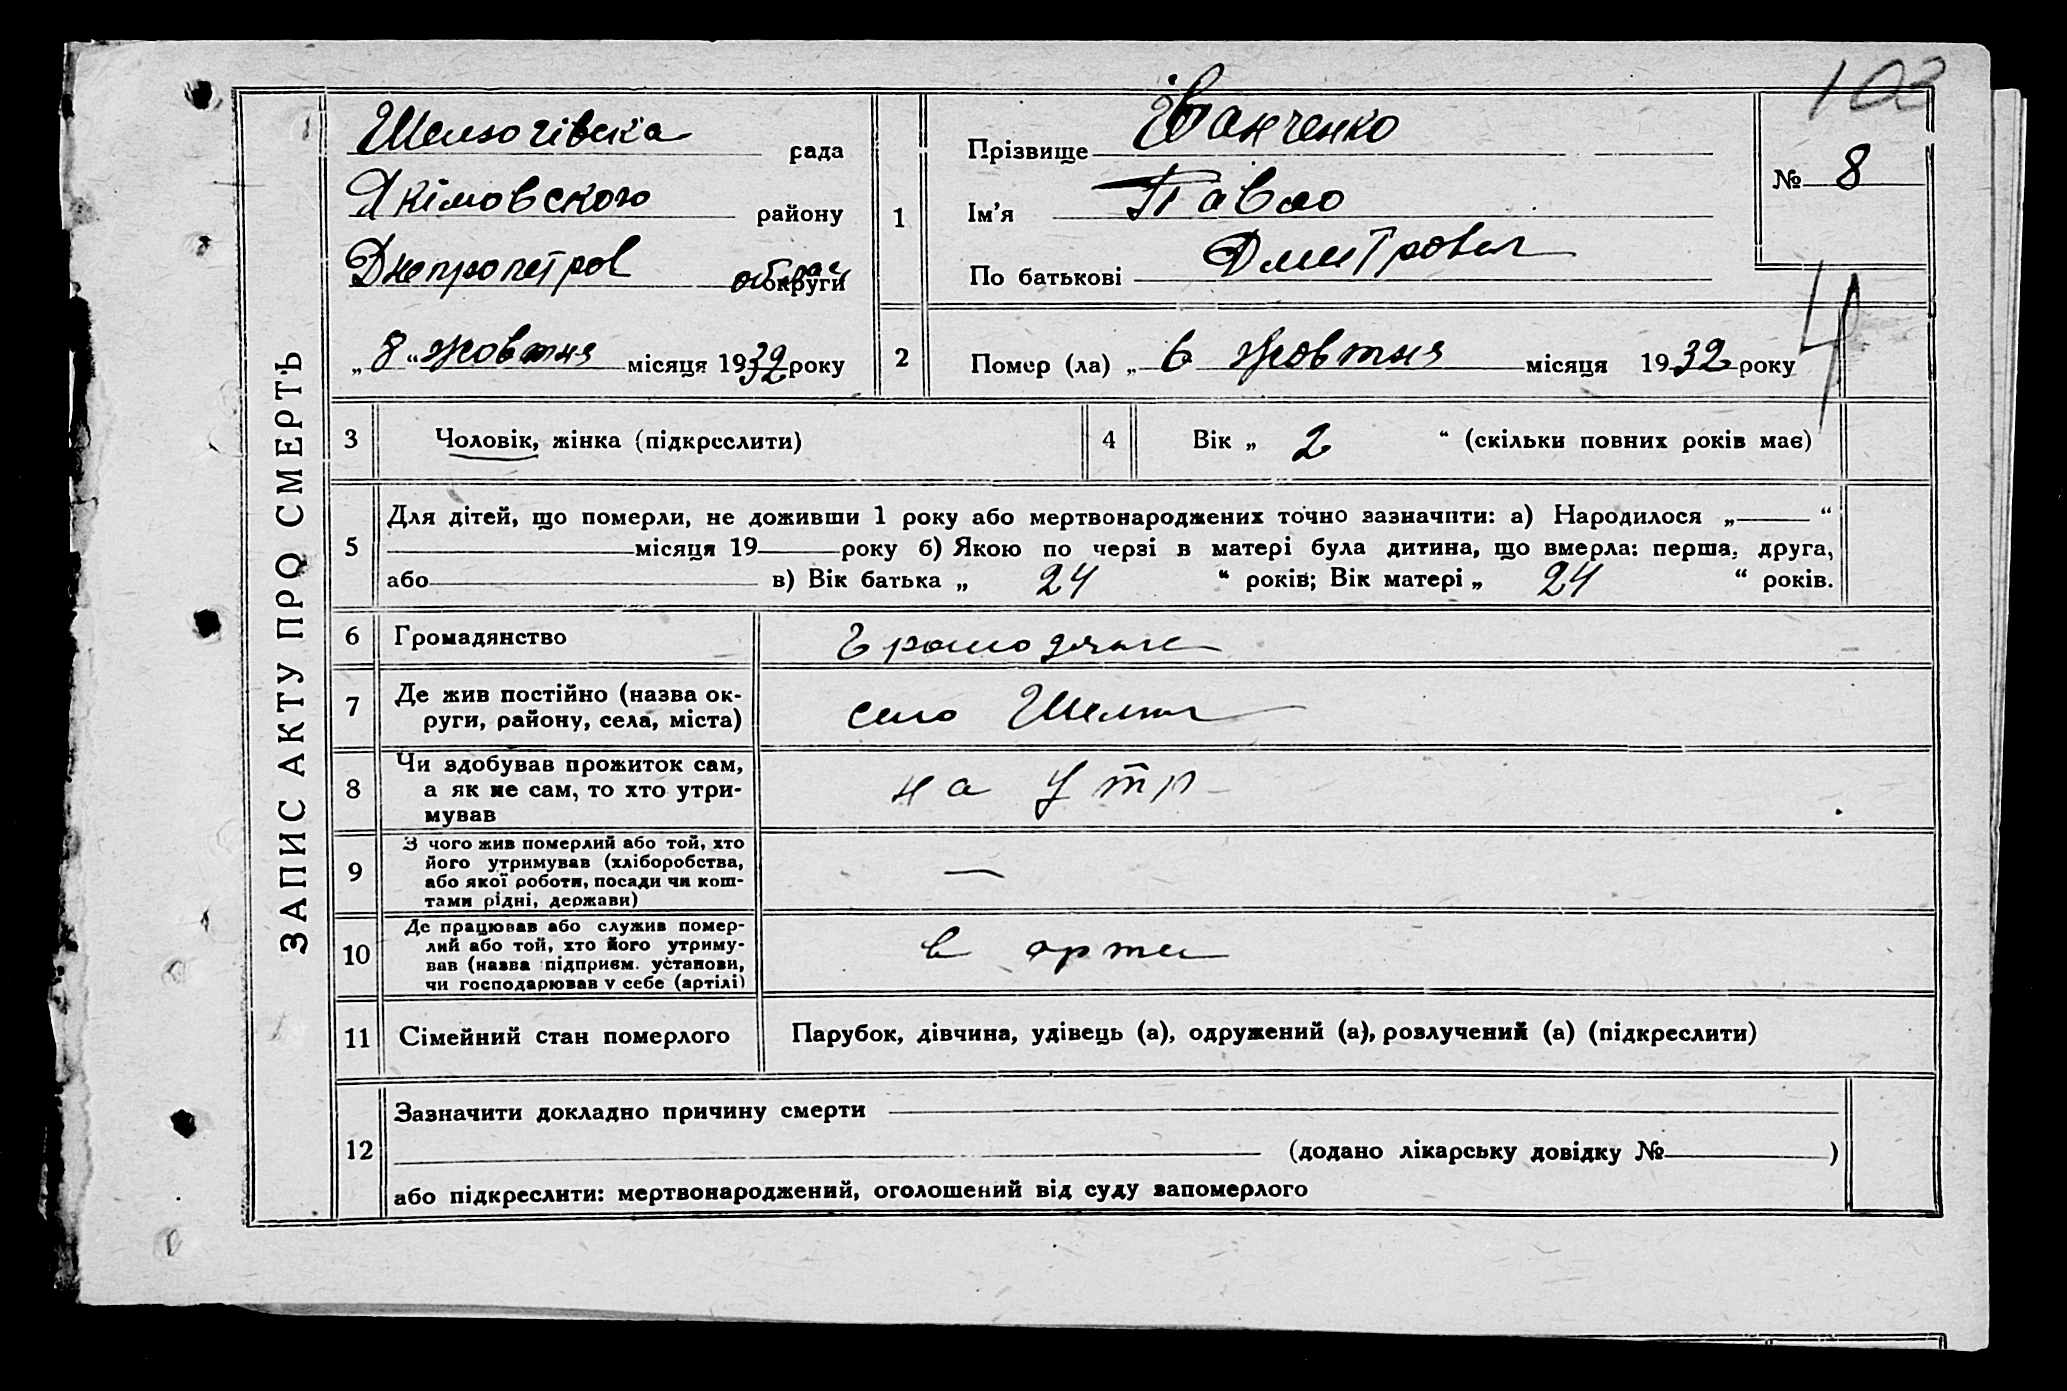 102
ЗАПИС АКТУ ПРО СМЕРТЬ
Шелюгівска рада
Якімовского району
Днепропетров округи област
„ 8 “ жовтня місяця 1932 року
1
Прізвище Іванченко
Ім’я Павло
По батькові Дмитрович
№ 8
2
Помер (ла) „ 6 жовтня місяця 1932 року
3
Чоловік, жінка (підкреслити)
4
Вік „ 2 “ (скільки повних років має)
5
Для дітей, що померли, не доживши 1 року або мертвонароджених точно зазначити: а) Народилося „ “
місяця 19 року б) Якою по черзі в матері була дитина, що вмерла: перша, друга,
або в) Вік батька „ 24 “ років; Вік матері „ 24 “ років.
6
Громадянство
громодяне
7
Де жив постійно (назва ок-
руги, району, села, міста)
село Шелюг
8
Чи здобував прожиток сам,
а як не сам, то хто утри-
мував
на утр
9
З чого жив померлий або той, хто
його утримував (хліборобства,
або якої роботи, посади чи кош-
тами рідні, держави)
—
10
Де працював або служив помер-
лий або той, хто його утриму-
вав (назва підприєм. установи,
чи господарював у себе (артілі)
в арте
11
Сімейний стан померлого
Парубок, дівчина, удівець (а), одружений (а), розлучений (а) (підкреслити)
12
Зазначити докладно причину смерти
(додано лікарську довідку № )
або підкреслити: мертвонароджений, оголошений від суду запомерлого